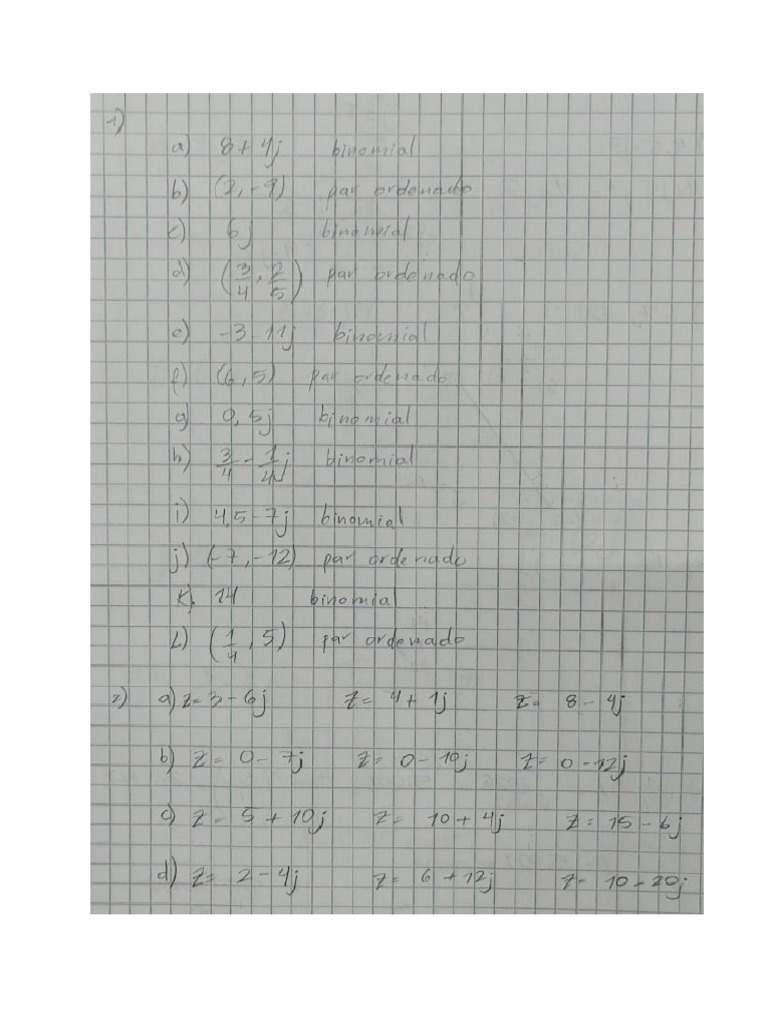 1)
a) 8 + 4j binomial
b) (2, -9) par ordenado
c) 6j binomial
d) (3/4, 2/5) par ordenado
e) -3 - 11j binomial
f) (6, 5) par ordenado
g) 0,5j binomial
h) 3/4 - 1/4j binomial
i) 4,5 - 7j binomial
j) (-7, -12) par ordenado
k) 14 binomial
L) (1/4, 5) par ordenado
2) a) z = 3 - 6j z = 4 + 1j z = 8 - 4j
b) z = 0 - 7j z = 0 - 10j z = 0 - 12j
c) z = 5 + 10j z = 10 + 4j z = 15 - 6j
d) z = 2 - 4j z = 6 + 12j z = 10 - 20j